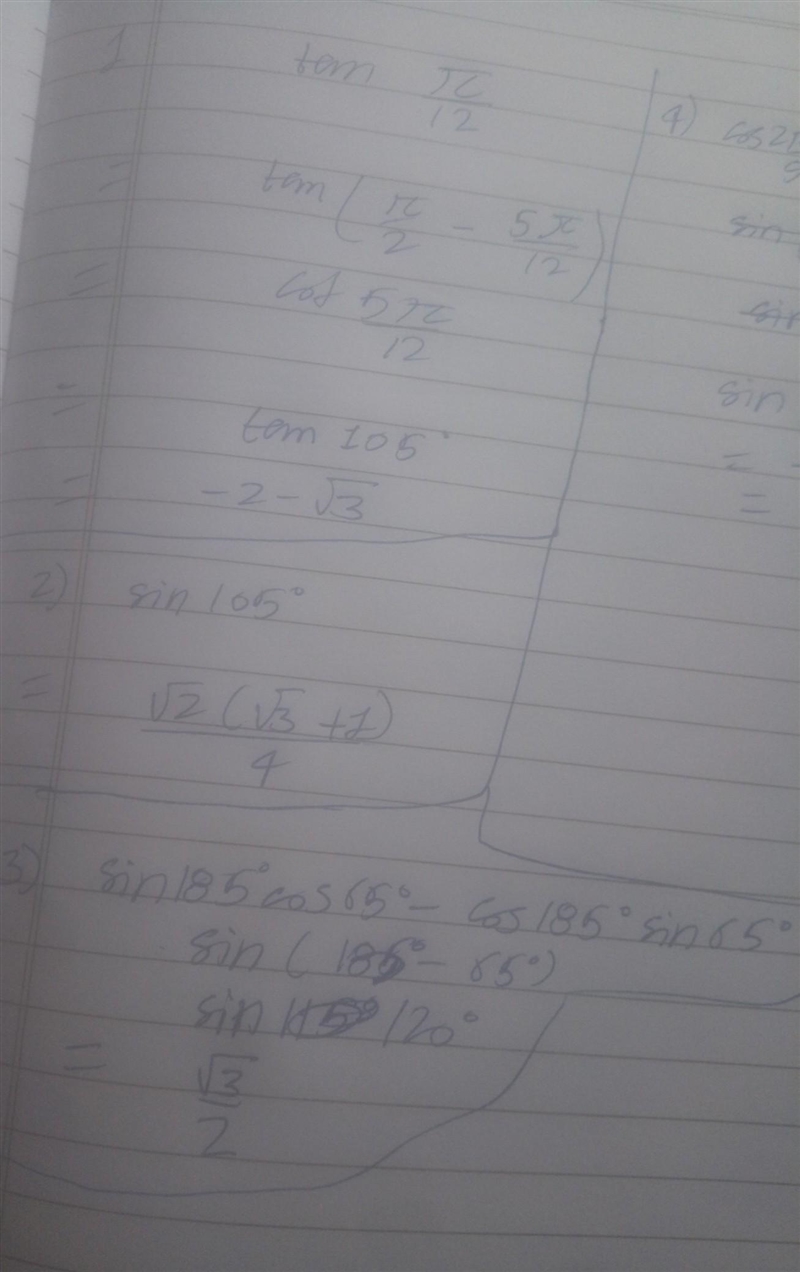 1 tan π/12
= tan (π/2 - 5π/12)
= cot 5π/12
= tan 105°
= -2 - √3
2) sin 105°
= √2 (√3 + 1) / 4
3) sin 185° cos 65° - cos 185° sin 65°
sin (185° - 65°)
sin 120°
= √3/2
4) cos
sin
sin
sin
=
=